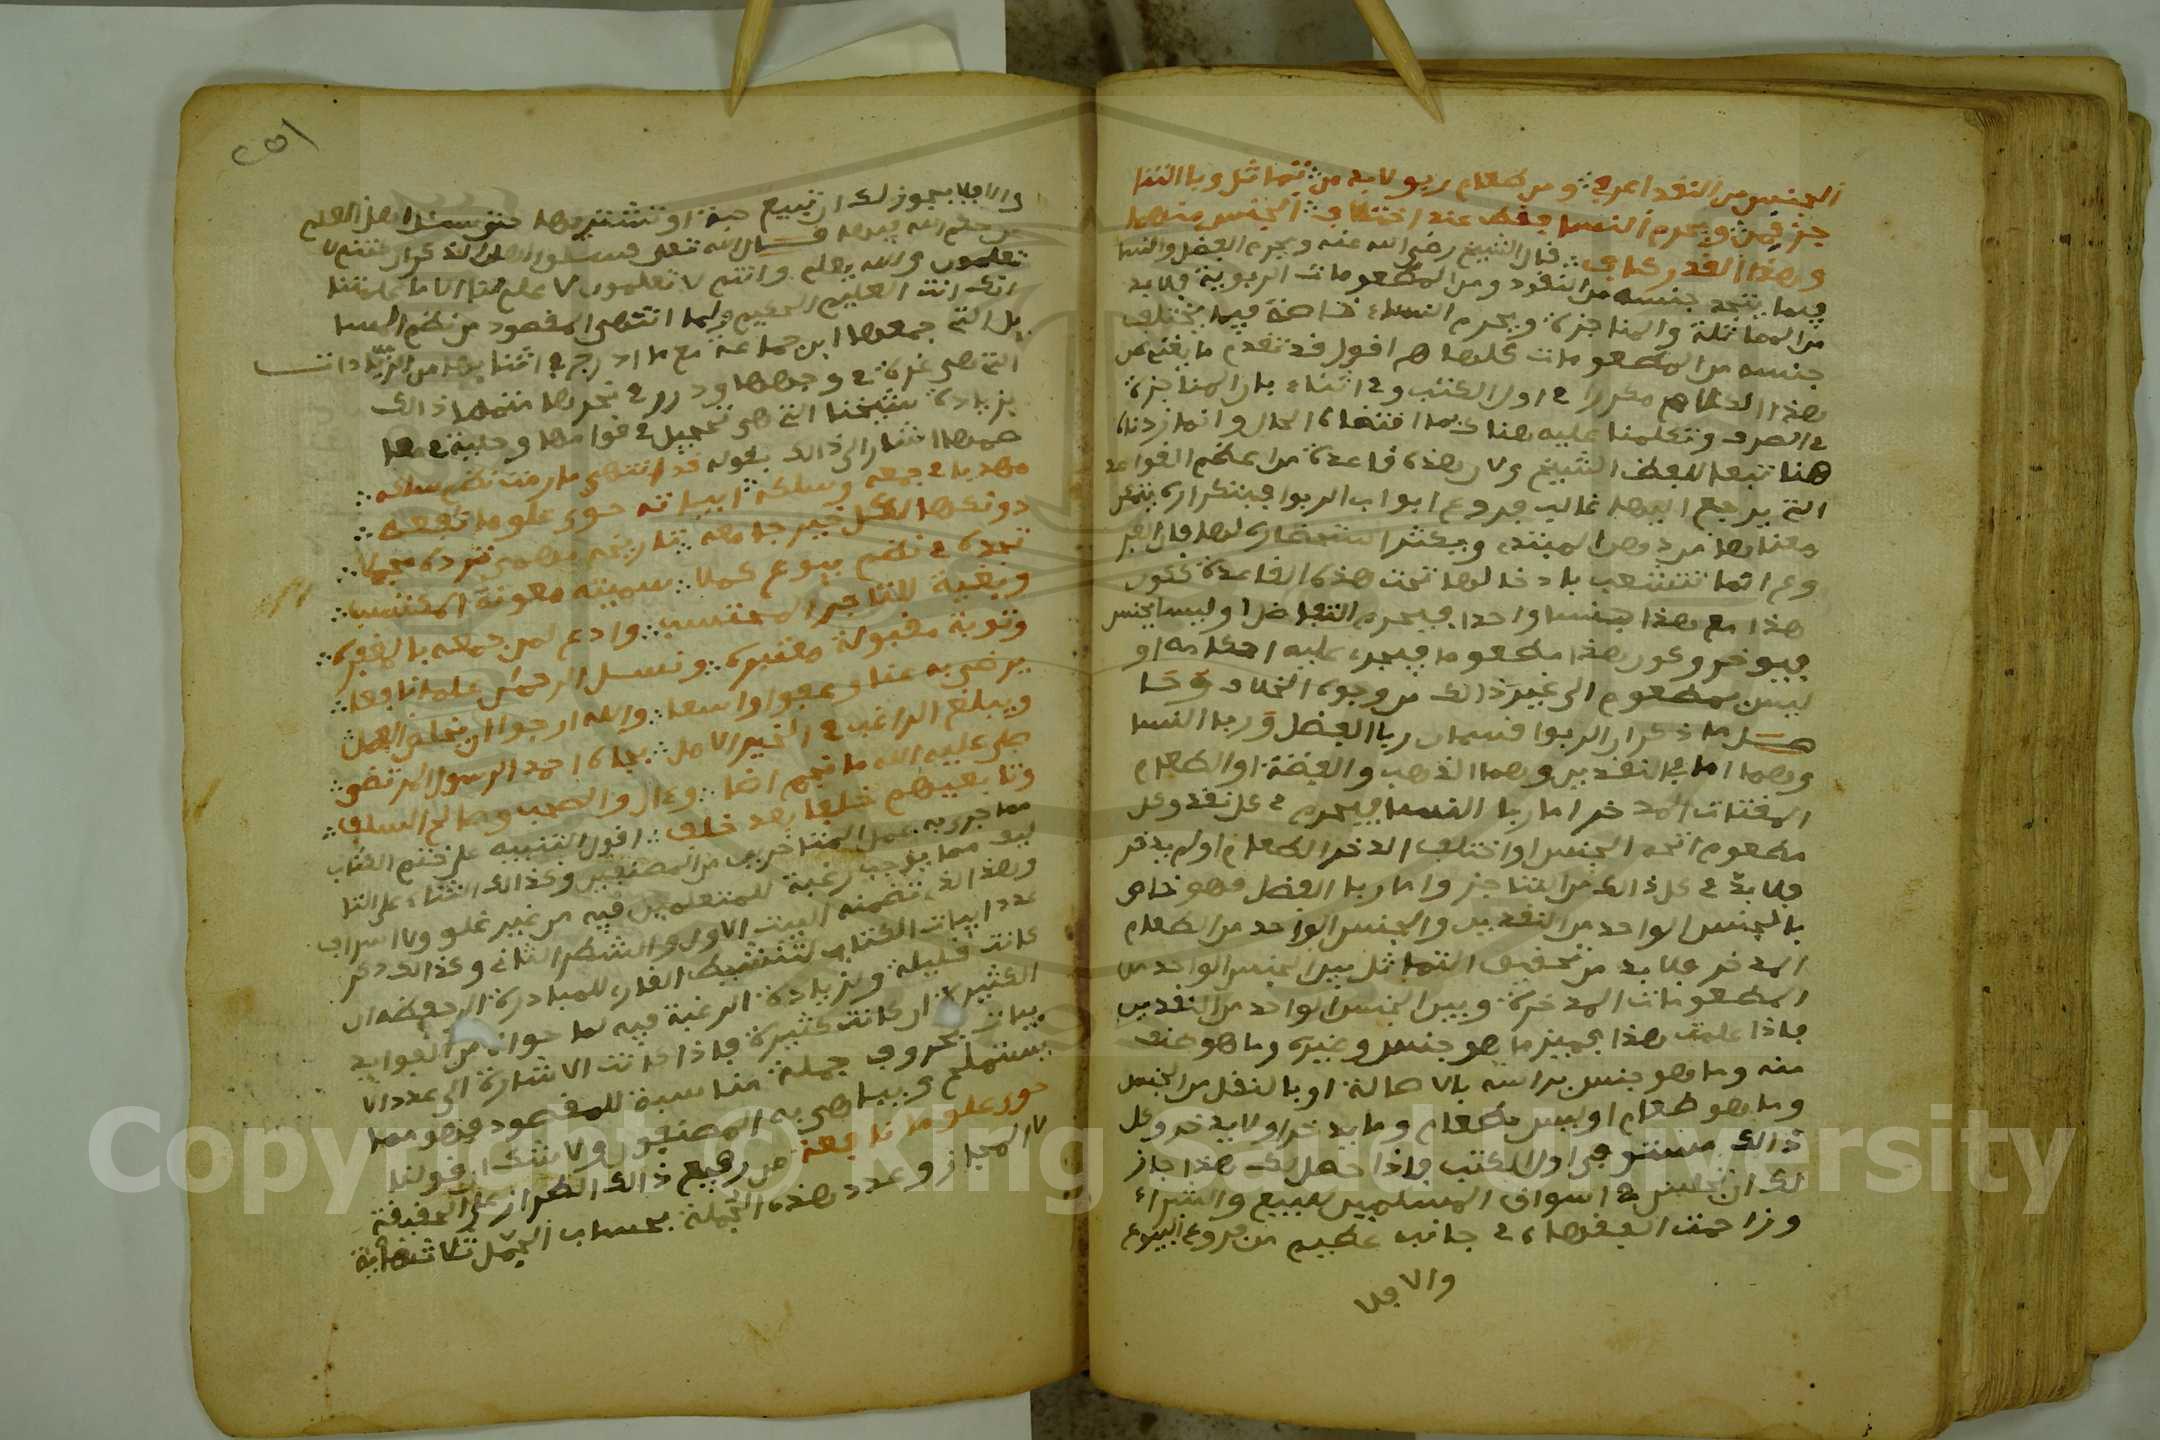 الجنس من النقد اعرف ومن طعام ربو لا بد من تماثل وبا التنا
جز قمن ويحرم النسا فقط عند اختلاف الجنس منهما
وهذا القدر كاف قال الشيخ رضي الله عنه ويحرم الفضل والنسا
فيما يتحد جنسه من النقود ومن المطعومات الربوية فلا بد
من المماثلة والمناجزة ويحرم النساء خاصة فيما يختلف
جنسه من المطعومات كلها اقول قد تقدم ما يغني عن
هذا الكلام مكررا في اول الكتب وفي اثناء باب المناجزة
في الصرف وتكلمنا عليه هناك بما اقتضاه الحال وانما زدناه
هنا تبعا للفظ الشيخ ولان هذه قاعدة من اعظم القواعد
التي يرجع اليها غالب فروع ابواب الربوا فبتكراره يتمكن
معناها من ذهن المبتدي ويكثر استحضاره لها فان الفر
وع انما تتشعب بادخالها تحت هذه القاعدة ككون
هذا مع هذا جنسا واحدا فيحرم التفاضل او ليسا بجنس
فيوخر وكون هذا مطعوما فيجري عليه احكامه او
ليس بمطعوم الى غير ذالك من وجوه الخلاف وحا
صل ما ذكر ان الربوا قسمان ربا الفضل وربا النسا
وهما اما في النقدين وهما الذهب والفضة او الطعام
المقتات المدخر اما ربا النسا فيحرم في كل نقد وكل
مطعوم اتحد الجنس او اختلف ادخر الطعام او لم يدخر
فلا بد في كل ذالك من التناجز واما ربا الفضل فهو خاص
بالجنس الواحد من النقدين والجنس الواحد من الطعام
المدخر فلا بد من تحقيق التماثل بين الجنس الواحد من
المطعومات المدخرة وبين الجنس الواحد من النقدين
فاذا علمت هذا فميز ما هو جنس وغيره وما هو صنف
منه وما هو جنس براسه بالاصالة او بالنقل من الجنس
وما هو طعام او ليس بطعام وما يدخر او لا يدخر وكل
ذالك مستوفى اول الكتب فاذا حصل لك هذا جاز
لك ان تجلس في اسواق المسلمين للبيع والشراء
وزاحمت الفقهاء في جانب عظيم من فروع البيوع
والا فلا
والا فلا يجوز لك ان تبيع حبة او تشتريها حتى تسئل اهل العلم
عن حكم الله فيها قال الله تعلى فسئلوا اهل الذكر ان كنتم لا
تعلمون والله يعلم وانتم لا تعلمون لا علم لنا الا ما علمتنا
انك انت العليم الحكيم ولما انتهى المقصود من نظم المسا
يل التي جمعها ابن جماعة مع ما ادرج في اثنايها من الزيادات
التي هي غرة في وجهها ودرر في نحرها متمما ذالك
بزيادة شيخنا التي هي تحجيل في قوامها وحلية في
اشار الى ذالك بقوله قد انتهى ما رمت نظم سلكه
مهذبا في جمعه وسبكه ابياته حوى علوما نفعه
دونكها لكل خير جامعه تاريخه
تجده في نظم بيوع كملا سميته معونة المكتسب
وبغية للتاجر المحتسب وادع لمن جمعه بالمغفره
وتوبة مقبولة ونسئل الرحمن علما نافعا
يرضى به عنا وعفوا واسعا والله ارجو ان يخلص العمل
ويبلغ الراغب في الخير الامل بجاه احمد الرسول المرتضى
صلى عليه الله ما نجم اضا وءال والصحب وصالح السلف
وتابعيهم خلفا بعد خلف اقول التنبيه على ختم الكتاب
مما جرى به عمل المتاخرين من المصنفين وكذالك الثناء على التا
ليف مما يوجب رغبة للمتعلمين فيه من غير غلو ولا اسراف
وهذا الذي تضمنه البيت الاول والشطر الثاني وكذالك ذكر
عدد ابيات الكتاب لتنشيط القارء للمبادرة الى حفظه ان
كانت قليلة ولزيادة الرغبة فيه لما حواه من الفوايد
الكثيرة ان كانت كثيرة فاذا كانت الاشارة الى عدد الا
بيات بحروف جملة مناسبة للمقصود فهو مما
يستملح ويباهي به المصنفون ولا شك ان قولنا
حوى علوما نافعة من رفيع ذالك الطراز على الحقيقة
لا المجاز وعدد هذه الجملة بحساب الجمل ثلاثماية